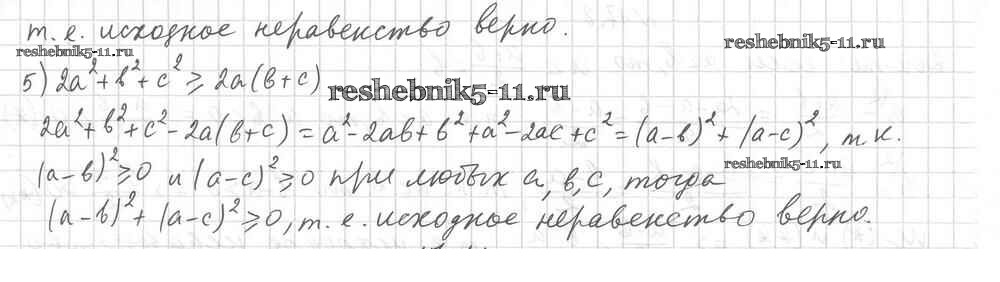 т.е. исходное неравенство верно.
reshebnik5-11.ru
reshebnik5-11.ru
5) 2a²+b²+c² ≥ 2a(b+c)
reshebnik5-11.ru
2a²+b²+c²-2a(b+c)=a²-2ab+b²+a²-2ac+c²=(a-b)²+(a-c)², т.к.
reshebnik5-11.ru
(a-b)²≥0 и (a-c)²≥0 при любых a, b, c, тогда
(a-b)²+(a-c)²≥0, т.е. исходное неравенство верно.